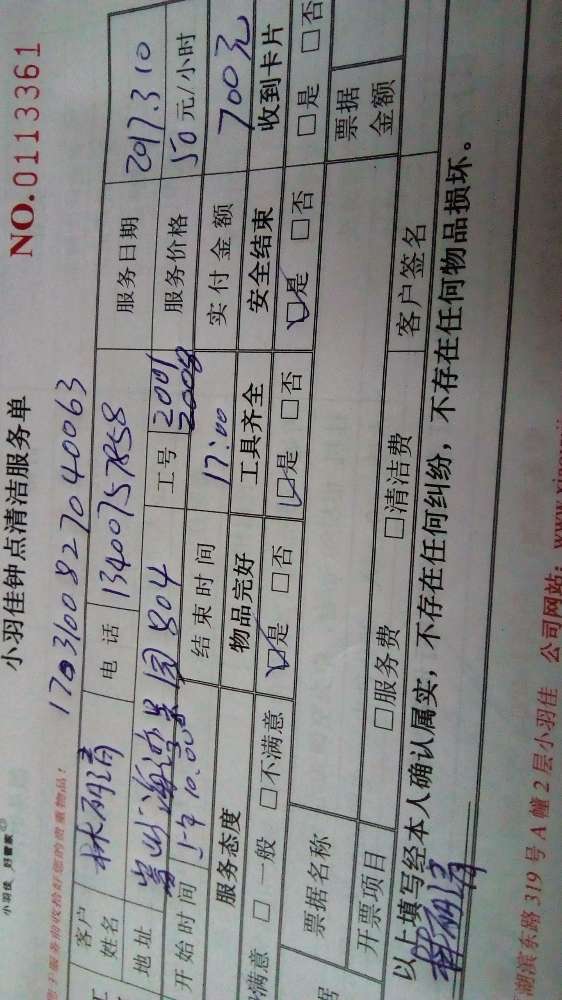 小羽佳 好管家
小羽佳钟点清洁服务单
NO.0113361
前收拾好您的贵重物品！
1703100827040063
客户姓名
电话 13400757858 服务日期 2017.3.10
地址 804 工号 2001 服务价格 50元/小时
开始时间 结束时间 17:00 实付金额 700元
服务态度 物品完好 工具齐全 安全结束 收到卡片
满意 □一般 □不满意 ☑是 □否 ☑是 □否 ☑是 □否 □是 □否
票据名称 票据金额
开票项目 □服务费 □清洁费 客户签名
以上填写经本人确认属实，不存在任何纠纷，不存在任何物品损坏。
湖滨东路319号A幢2层小羽佳 公司网站：